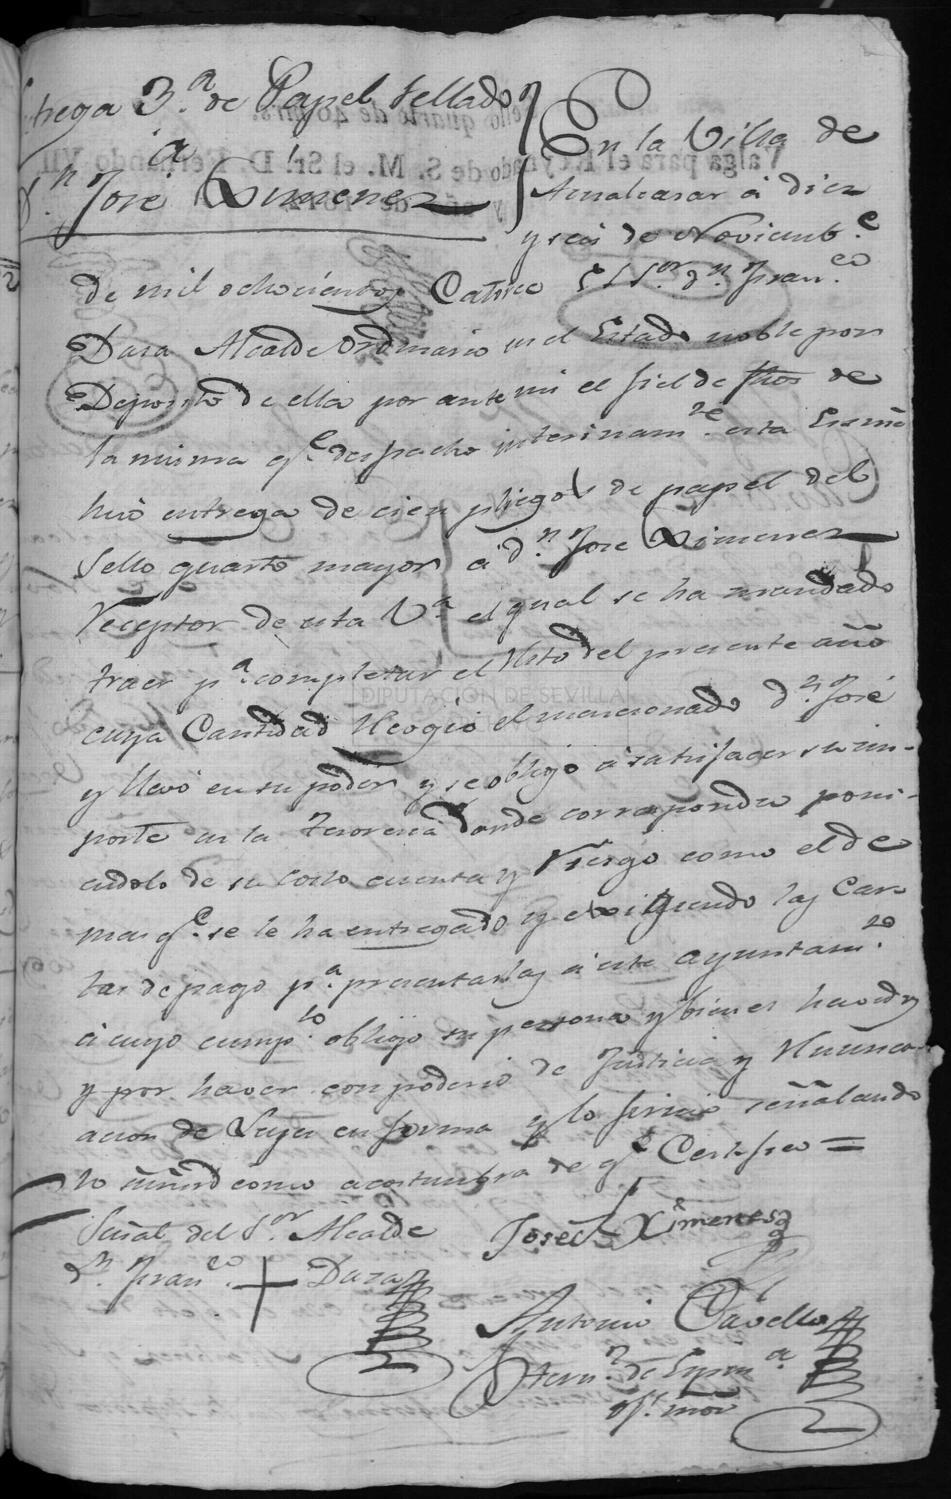 Entrega 3.ª de Papel Sellado
á
D.n José Ximenez
En la Villa de
Aznalcasar á diez
y seis de Noviemb.e
de mil ochocientos Catorce el S.or d.n Fran.co
Daza Alcalde Ordinario en el Estado noble por
Deposito de ella por ante mi el fiel de fhos de
la misma q.e despacho interinam.te esta Escrivª
hizo entrega de cien pliegos de papel del
Sello quarto mayor á d.n Jose Ximenez
Receptor de esta V.ª el qual se ha mandado
traer p.ª completar el Rsto del presente año
cuya Cantidad Recogio el mencionado d.n José
y llevó en su poder y se obligo á satisfacer su im-
porte en la Tesoreria donde corresponda poni-
endolo de su costo cuenta y Riesgo como el de
mas q.e se le ha entregado y exigiendo las Car-
tas de pago p.ª presentarlas á este ayuntam.to
á cuyo cump.to obligo su persona y bienes havidos
y por haver con poderio de Justicia y Renunci-
acion de Leyes en forma y lo firmó señalando
lo su mrd como acostumbra de q.e Certifico =
Señal del S.or Alcalde
D.n Fran.co + Daza
José Ximenes
Antonio Cavello
Intern.º de Escrivª
DIPUTACIÓN DE SEVILLA
ARCHIVO
Sello quarto de 40 mrs.
Valga para el Reynado de S. M. el Sr. D. Fernando VII